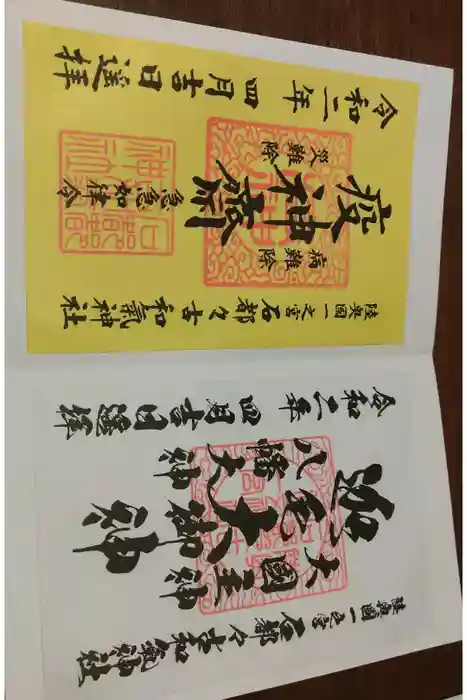 陸奥國一之宮石都々古和氣神社
大國主神
迦毛大御神
八幡大神
令和二年四月吉日遙拝
陸奥國一之宮石都々古和氣神社
病難除
疫神齋
急急如律令
災難除
令和二年四月吉日遙拝